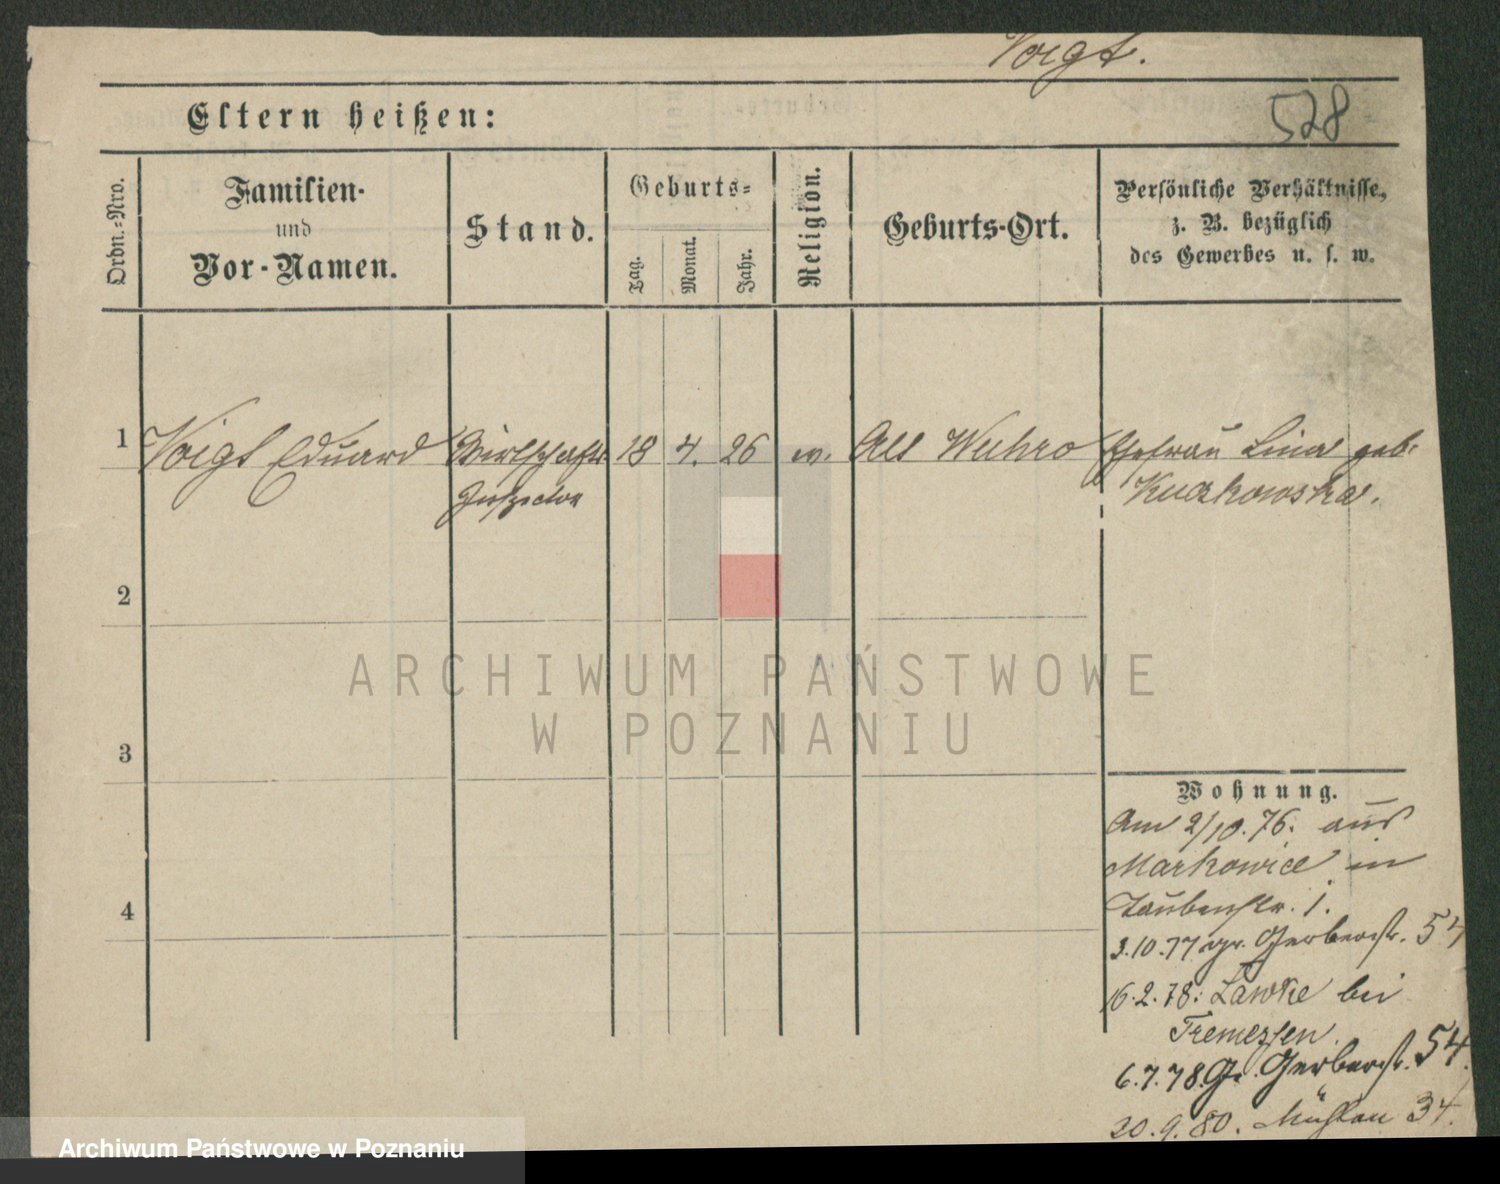 Voigt.
528
Eltern heißen:
Ordn.-Nro.
Familien-
und
Vor-Namen.
Stand.
Geburts-
Tag.
Monat.
Jahr.
Religion.
Geburts-Ort.
Persönliche Verhältnisse,
z. B. bezüglich
des Gewerbes u. s. w.
1 Voigt Eduard Wirthschafts 18 4. 26 ev. Alt Ehefrau Lina geb.
Inspector
2
3
4
Wohnung.
Am 2/10. 76. aus
Markowice in
Taubenstr. 1.
3.10.77 gr. Gerberstr. 54
16.2.78: bei
Tremessen.
6.7.78. Gr. Gerberstr. 54.
20.9.80. Mühlen 34.
ARCHIWUM PAŃSTWOWE
W POZNANIU
Archiwum Państwowe w Poznaniu